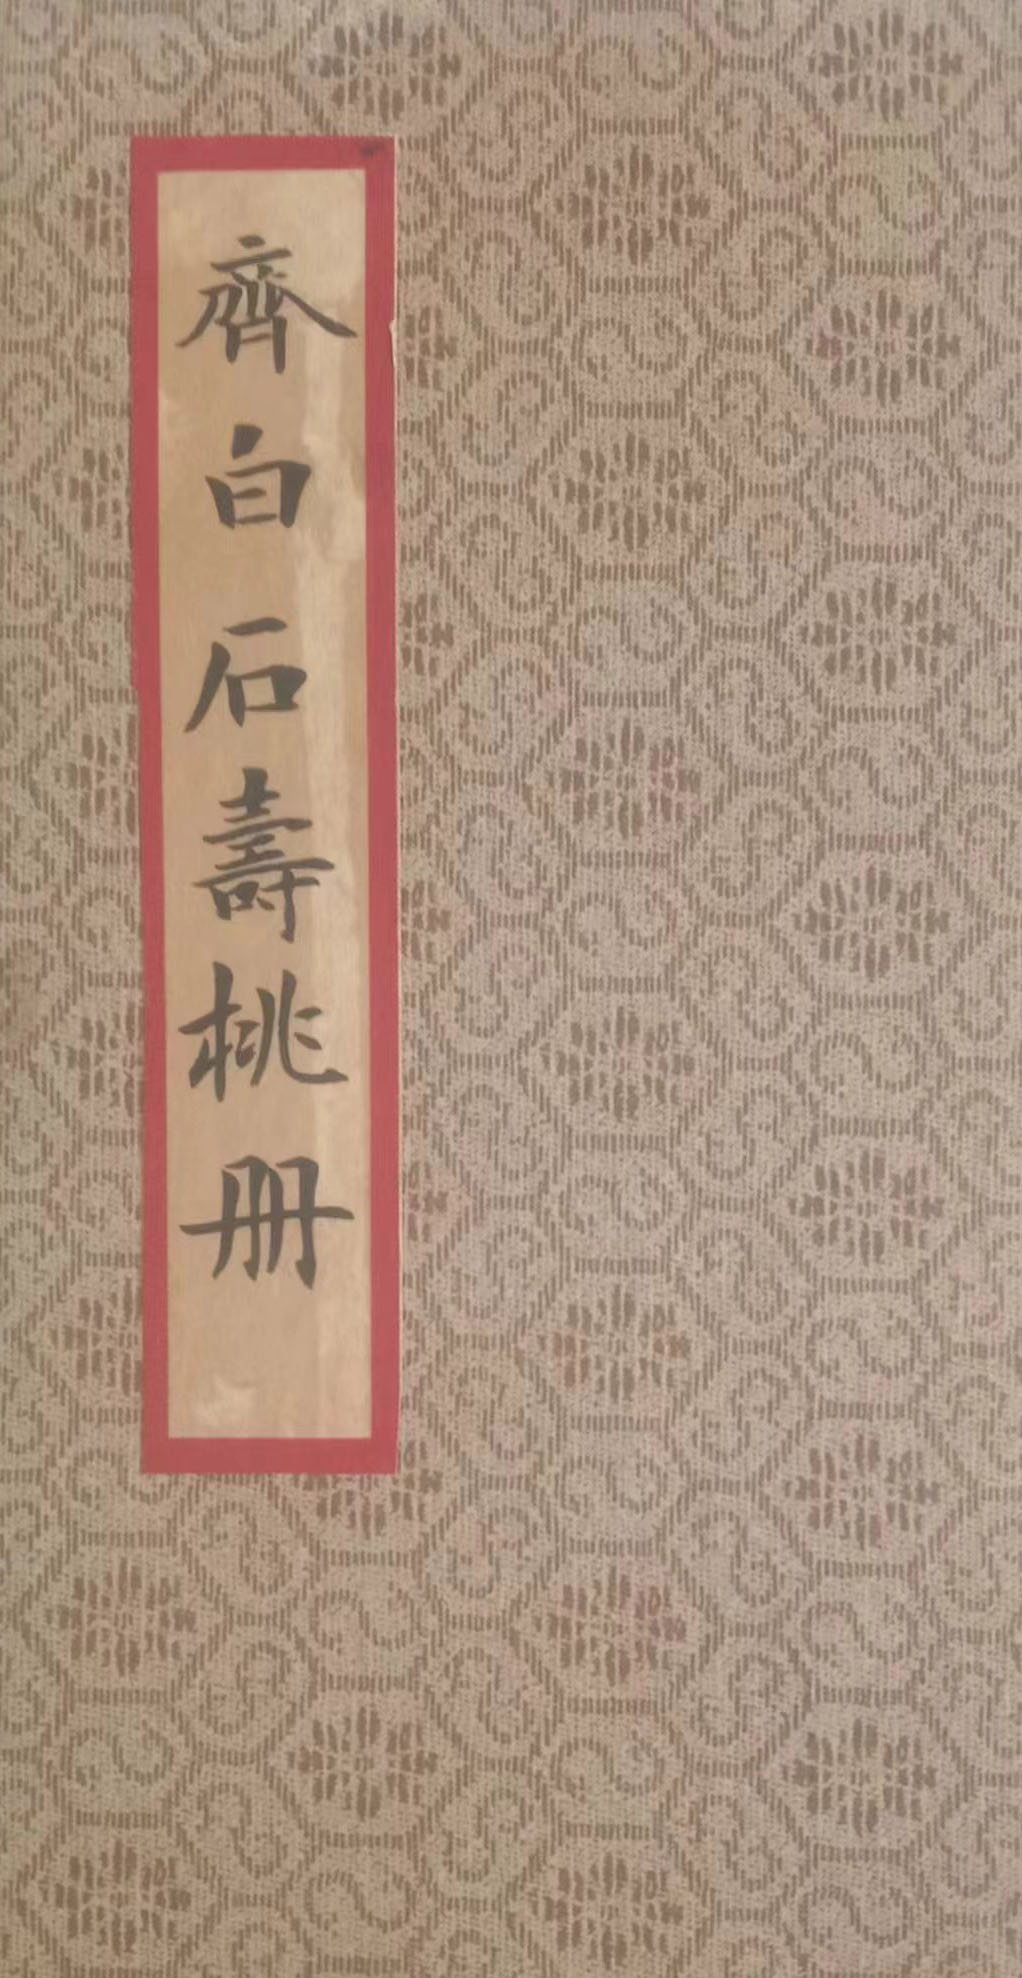 齊白石壽桃册